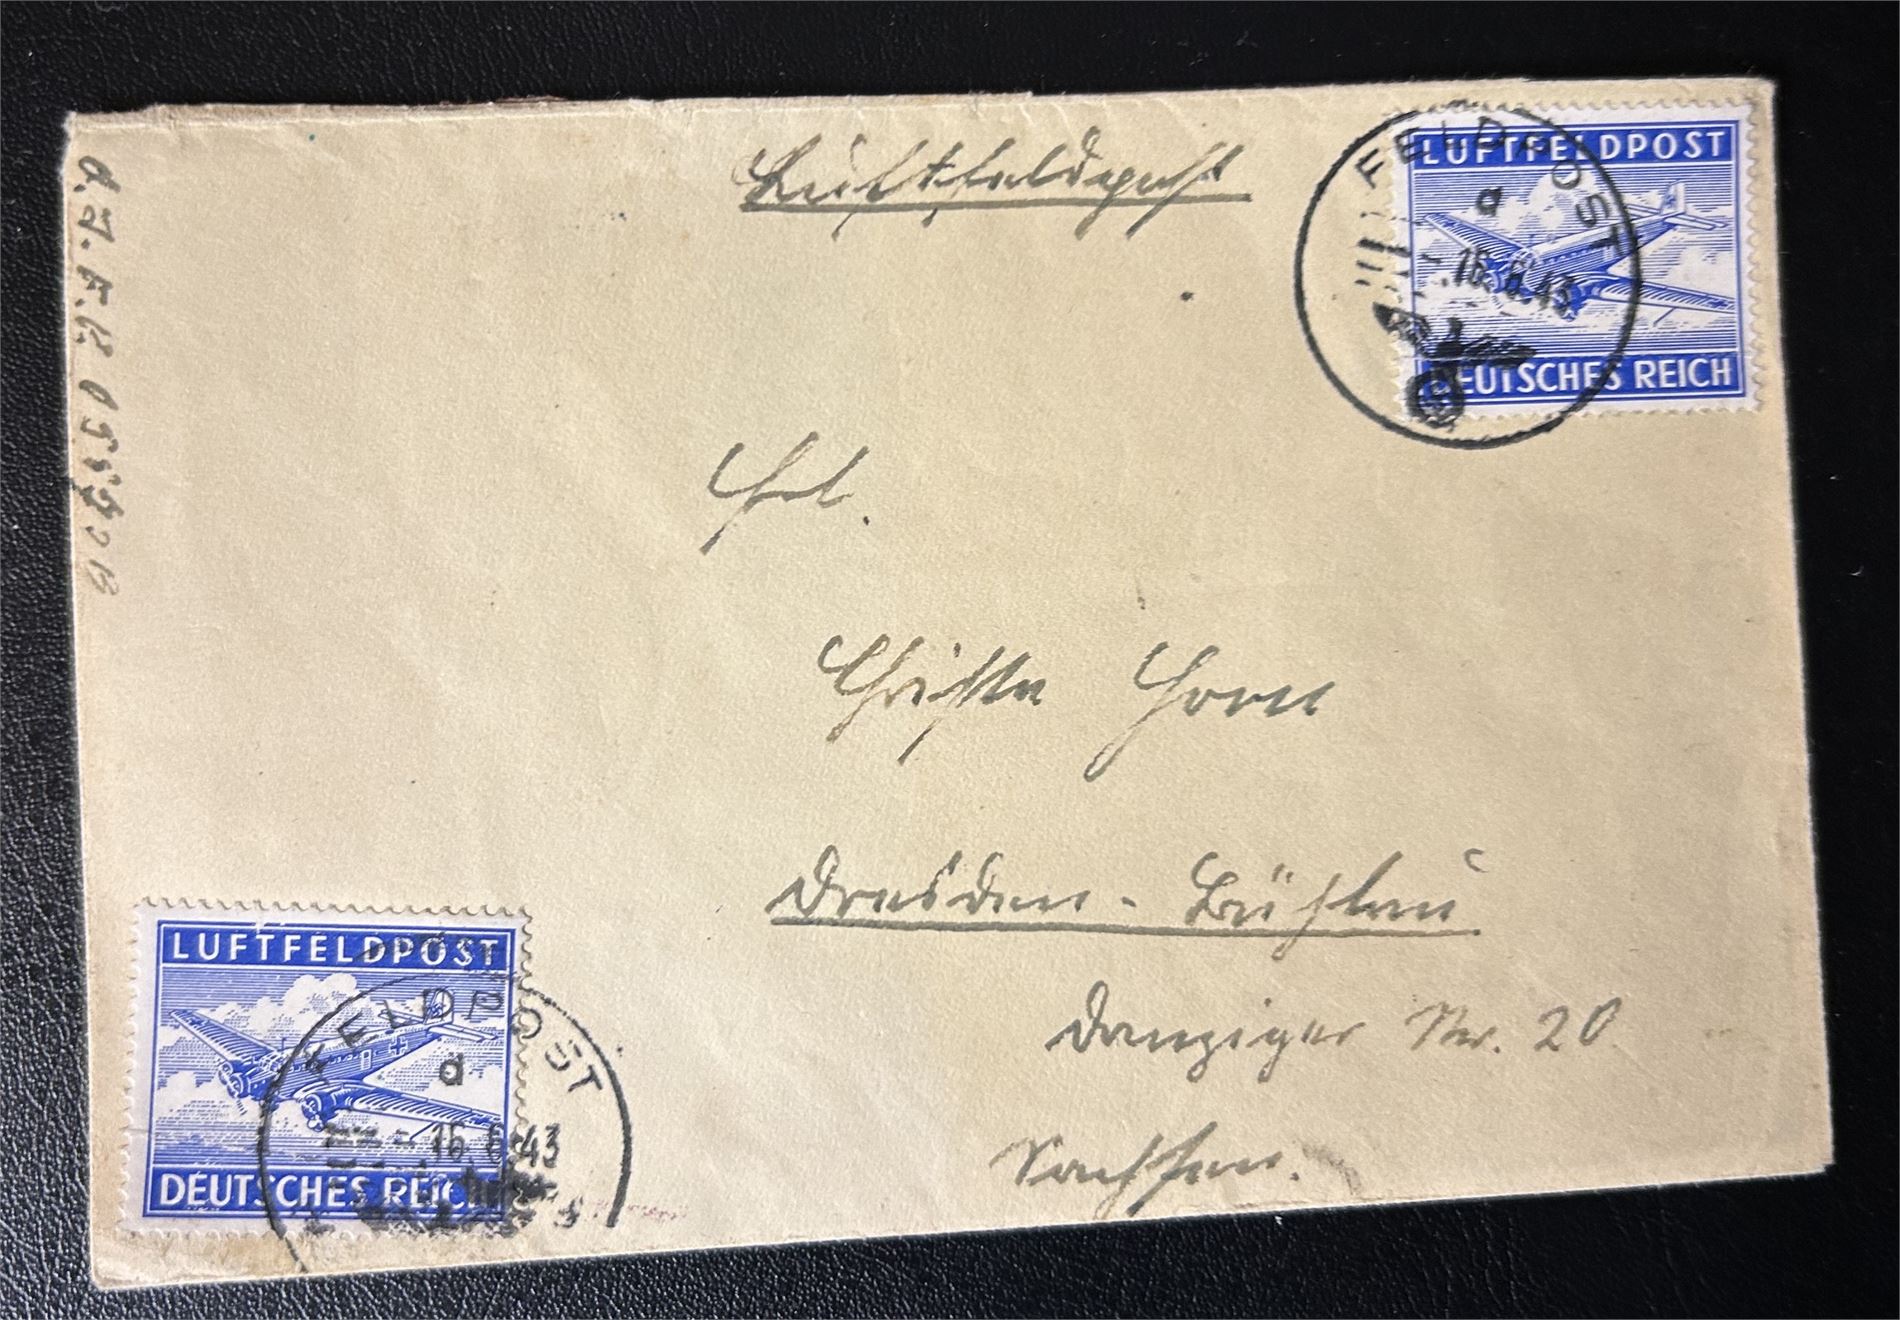 Luftfeldpost
LUFTFELDPOST
DEUTSCHES REICH
FELDPOST
a
16.6.43
Frl.
Christa Horn
Dresden-Bühlau
Danziger Str. 20
Sachsen.
LUFTFELDPOST
DEUTSCHES REICH
FELDPOST
a
16.6.43